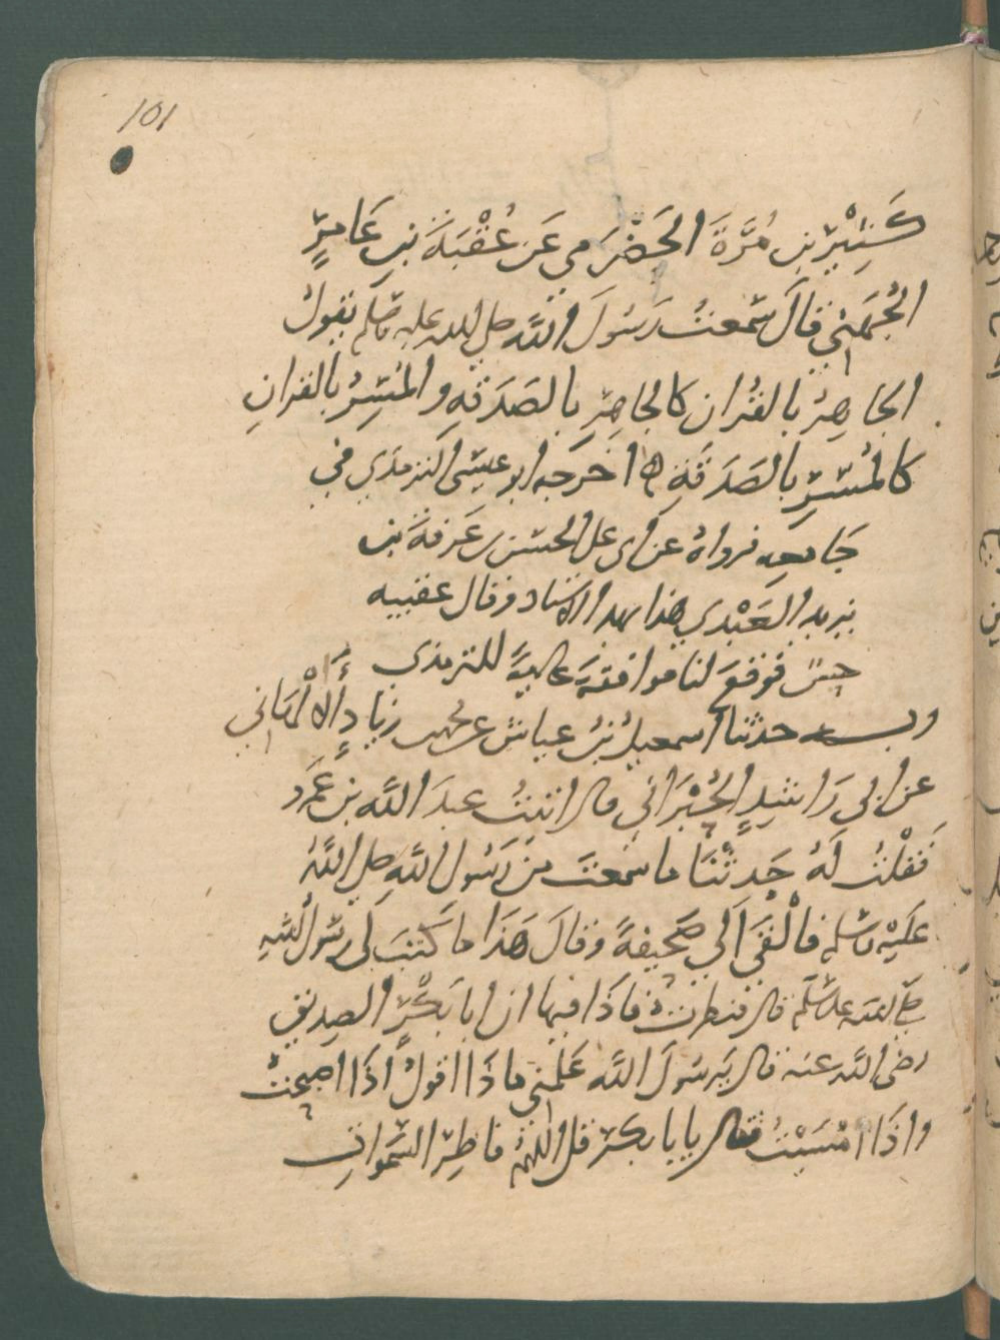 101
كَثِيْرِ بْنِ مُرَّةَ الحَضْرَمِي عَن عُقْبَةَ بنِ عَامِرٍ
الجُهَنِي قالَ سَمعتُ رَسُولَ اللَّه صلى الله عليه وسلم يقولُ
الجاهِرُ بالقُرانِ كالجاهِرِ بالصَدَقَةِ والمُسِرُّ بالقرانِ
كالمُسِرِّ بالصَدَقَةِ ه اخرَجَه ابو عيسَى الترمذي في
جَامعهِ فرواهُ عن ابى على الحسَن بن عَرفةَ بن
يزيد العَبْدي هذا بهذا الاسناد وقال عقيبه
حسنٌ فوقعَ لنا موافقةً عاليةً للترمذى
وبه حدثنا اسمعيلُ بنُ عياش عن محمد بن زيادٍ الأَلْهَاني
عن ابى رَاشدٍ الحُبْرَاني قال اتيتُ عبدَ اللَّه بن عَمرو
فَقلْتُ لَهُ حَدِثْنَا ما سَمعتَ مِن رَسُولِ اللَّهِ صلى اللَّهُ
عَلَيْهِ وسَلم فالْقَى اَلي صَحِيفةً وقالَ هَذَا ما كَتبَ لى رسُولُ اللَّهِ
صلى الله عليه وسَلم قال فنظرتُ فاذَا فيها ان ابا بَكْرٍ الصِديقِ
رضى اللَّه عنه قال يَرسُولَ اللَّه عَلمني ماذَا اقولُ اذَا اصبحتُ
واذَا امْسَيْتُ فقال يابا بكرٍ قل اللَّهمَّ فاطِرَ السَّمواتِ